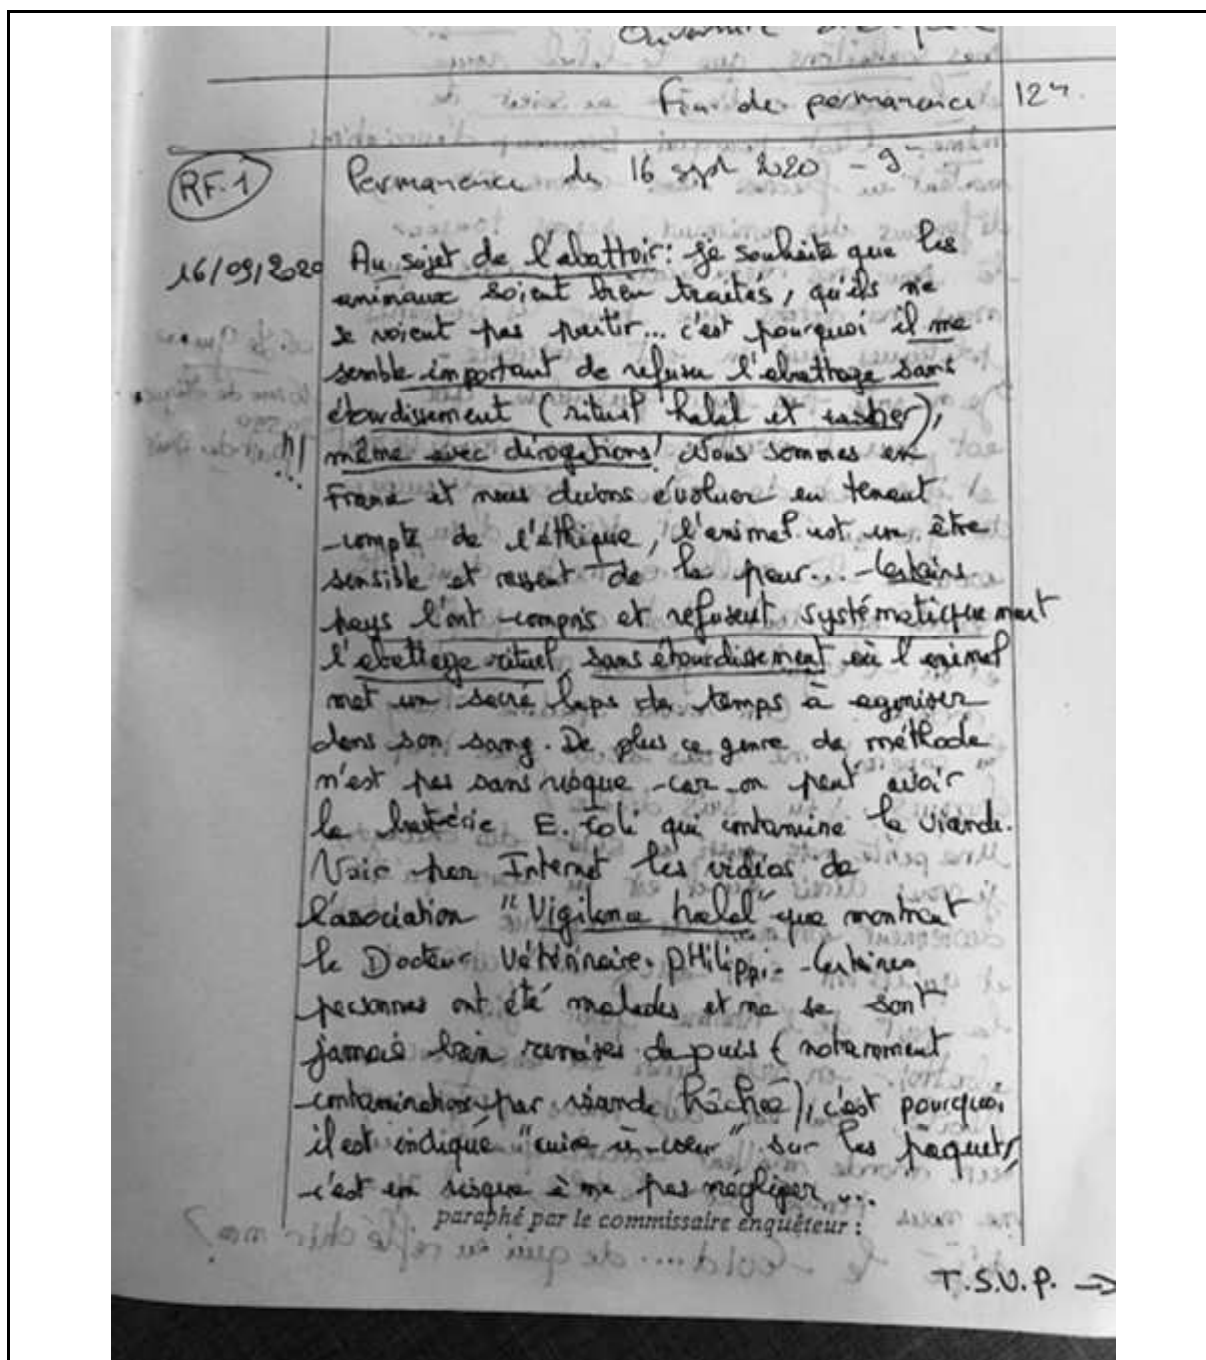 Ouverture
Fin de permanence 12h.
RF.1
Permanence du 16 sept 2020 - 9h
16/09/2020
Au sujet de l'abattoir: je souhaite que les
animaux soient bien traités, qu'ils ne
se voient pas partir... c'est pourquoi il me
semble important de refuser l'abattage sans
étourdissement (rituel halal et casher),
même avec dérogations! Nous sommes en
France et nous devons évoluer en tenant
compte de l'éthique, l'animal est un être
sensible et ressent de la peur... Certains
pays l'ont compris et refusent systématiquement
l'abattage rituel, sans étourdissement où l'animal
met un sacré laps de temps à agoniser
dans son sang. De plus ce genre de méthode
n'est pas sans risque car on peut avoir
la bactérie E. Coli qui contamine la viande.
Voir par Internet les vidéos de
l'association "Vigilance halal" que montrent
le Docteur Vétérinaire. PHilippi. Certaines
personnes ont été malades et ne se sont
jamais bien remises depuis (notamment
contamination par viande hâchée), c'est pourquoi
il est indiqué "cuire à coeur" sur les paquets,
c'est un risque à ne pas négliger...
paraphé par le commissaire enquêteur :
T.S.V.P. →